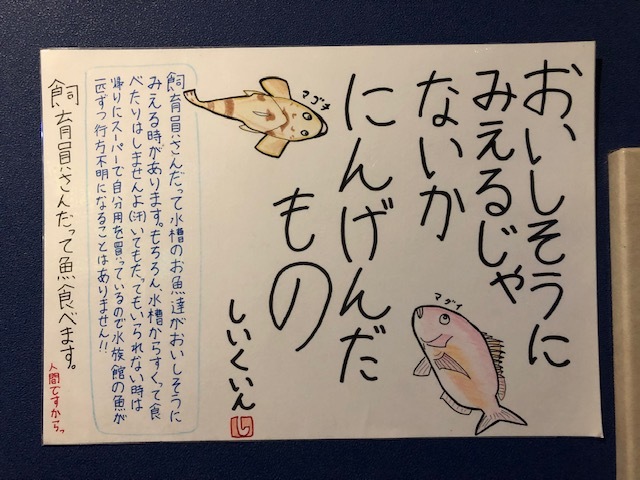 おいしそうに
みえるじゃ
ないか
にんげんだ
もの
しいくいん
マダイ
マゴチ
飼育員さんだって水槽のお魚達がおいしそうに
みえる時があります。もちろん、水槽からすくって食
べたりはしませんよ(汗)いてもたってもいられない時は
帰りにスーパーで自分用を買っているので水族館の魚が
一匹ずつ行方不明になることはありません!!
飼育員さんだって魚食べます。
人間ですからっ